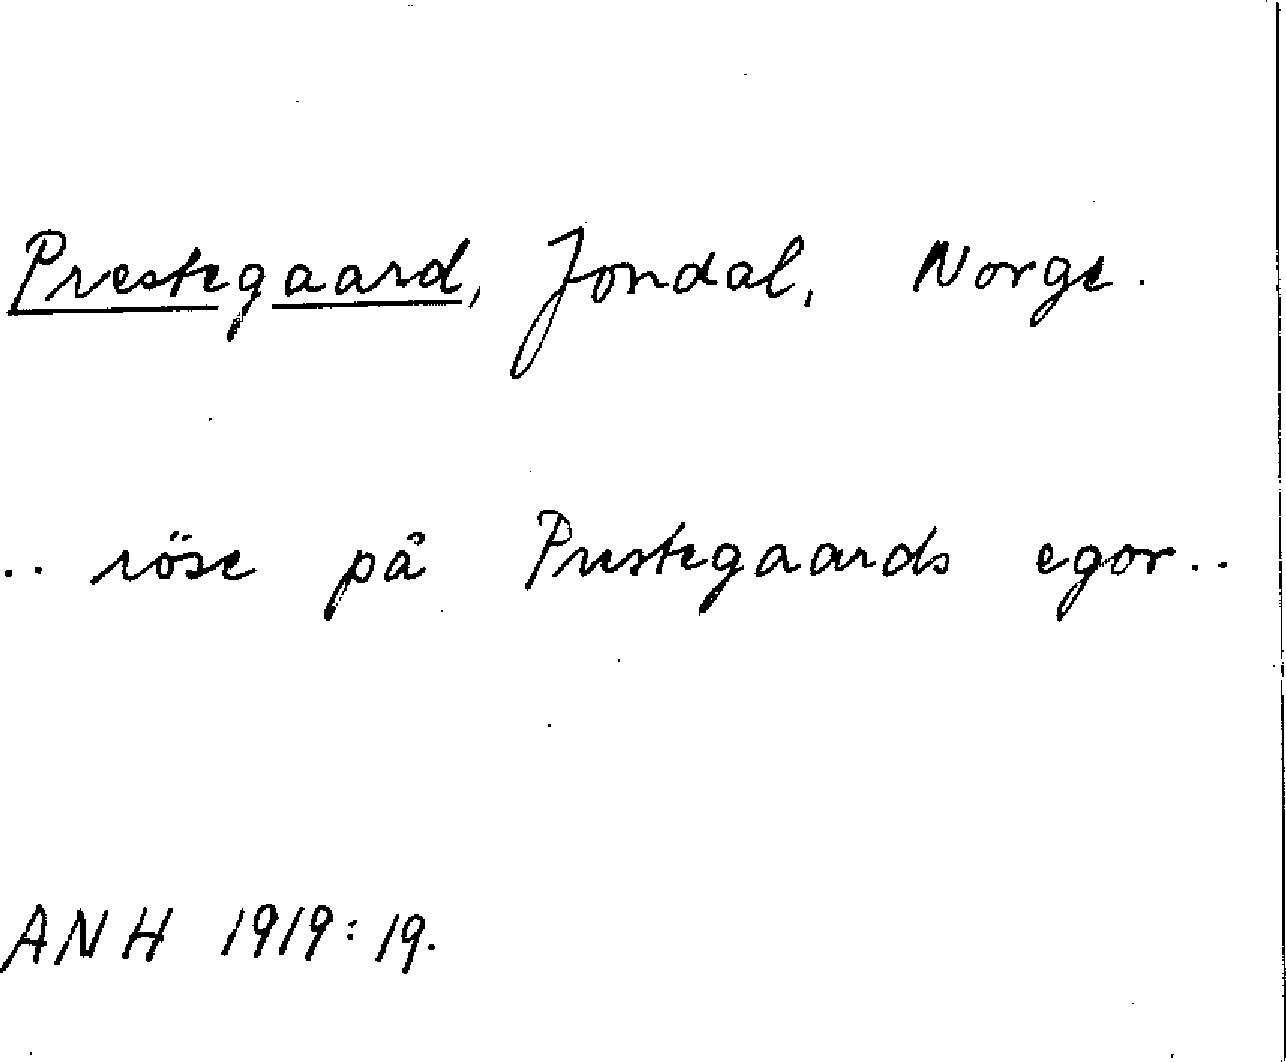 Prestegaard, Jondal, Norge.
.. röse på Prestegaards egor..
ANH 1919:19.